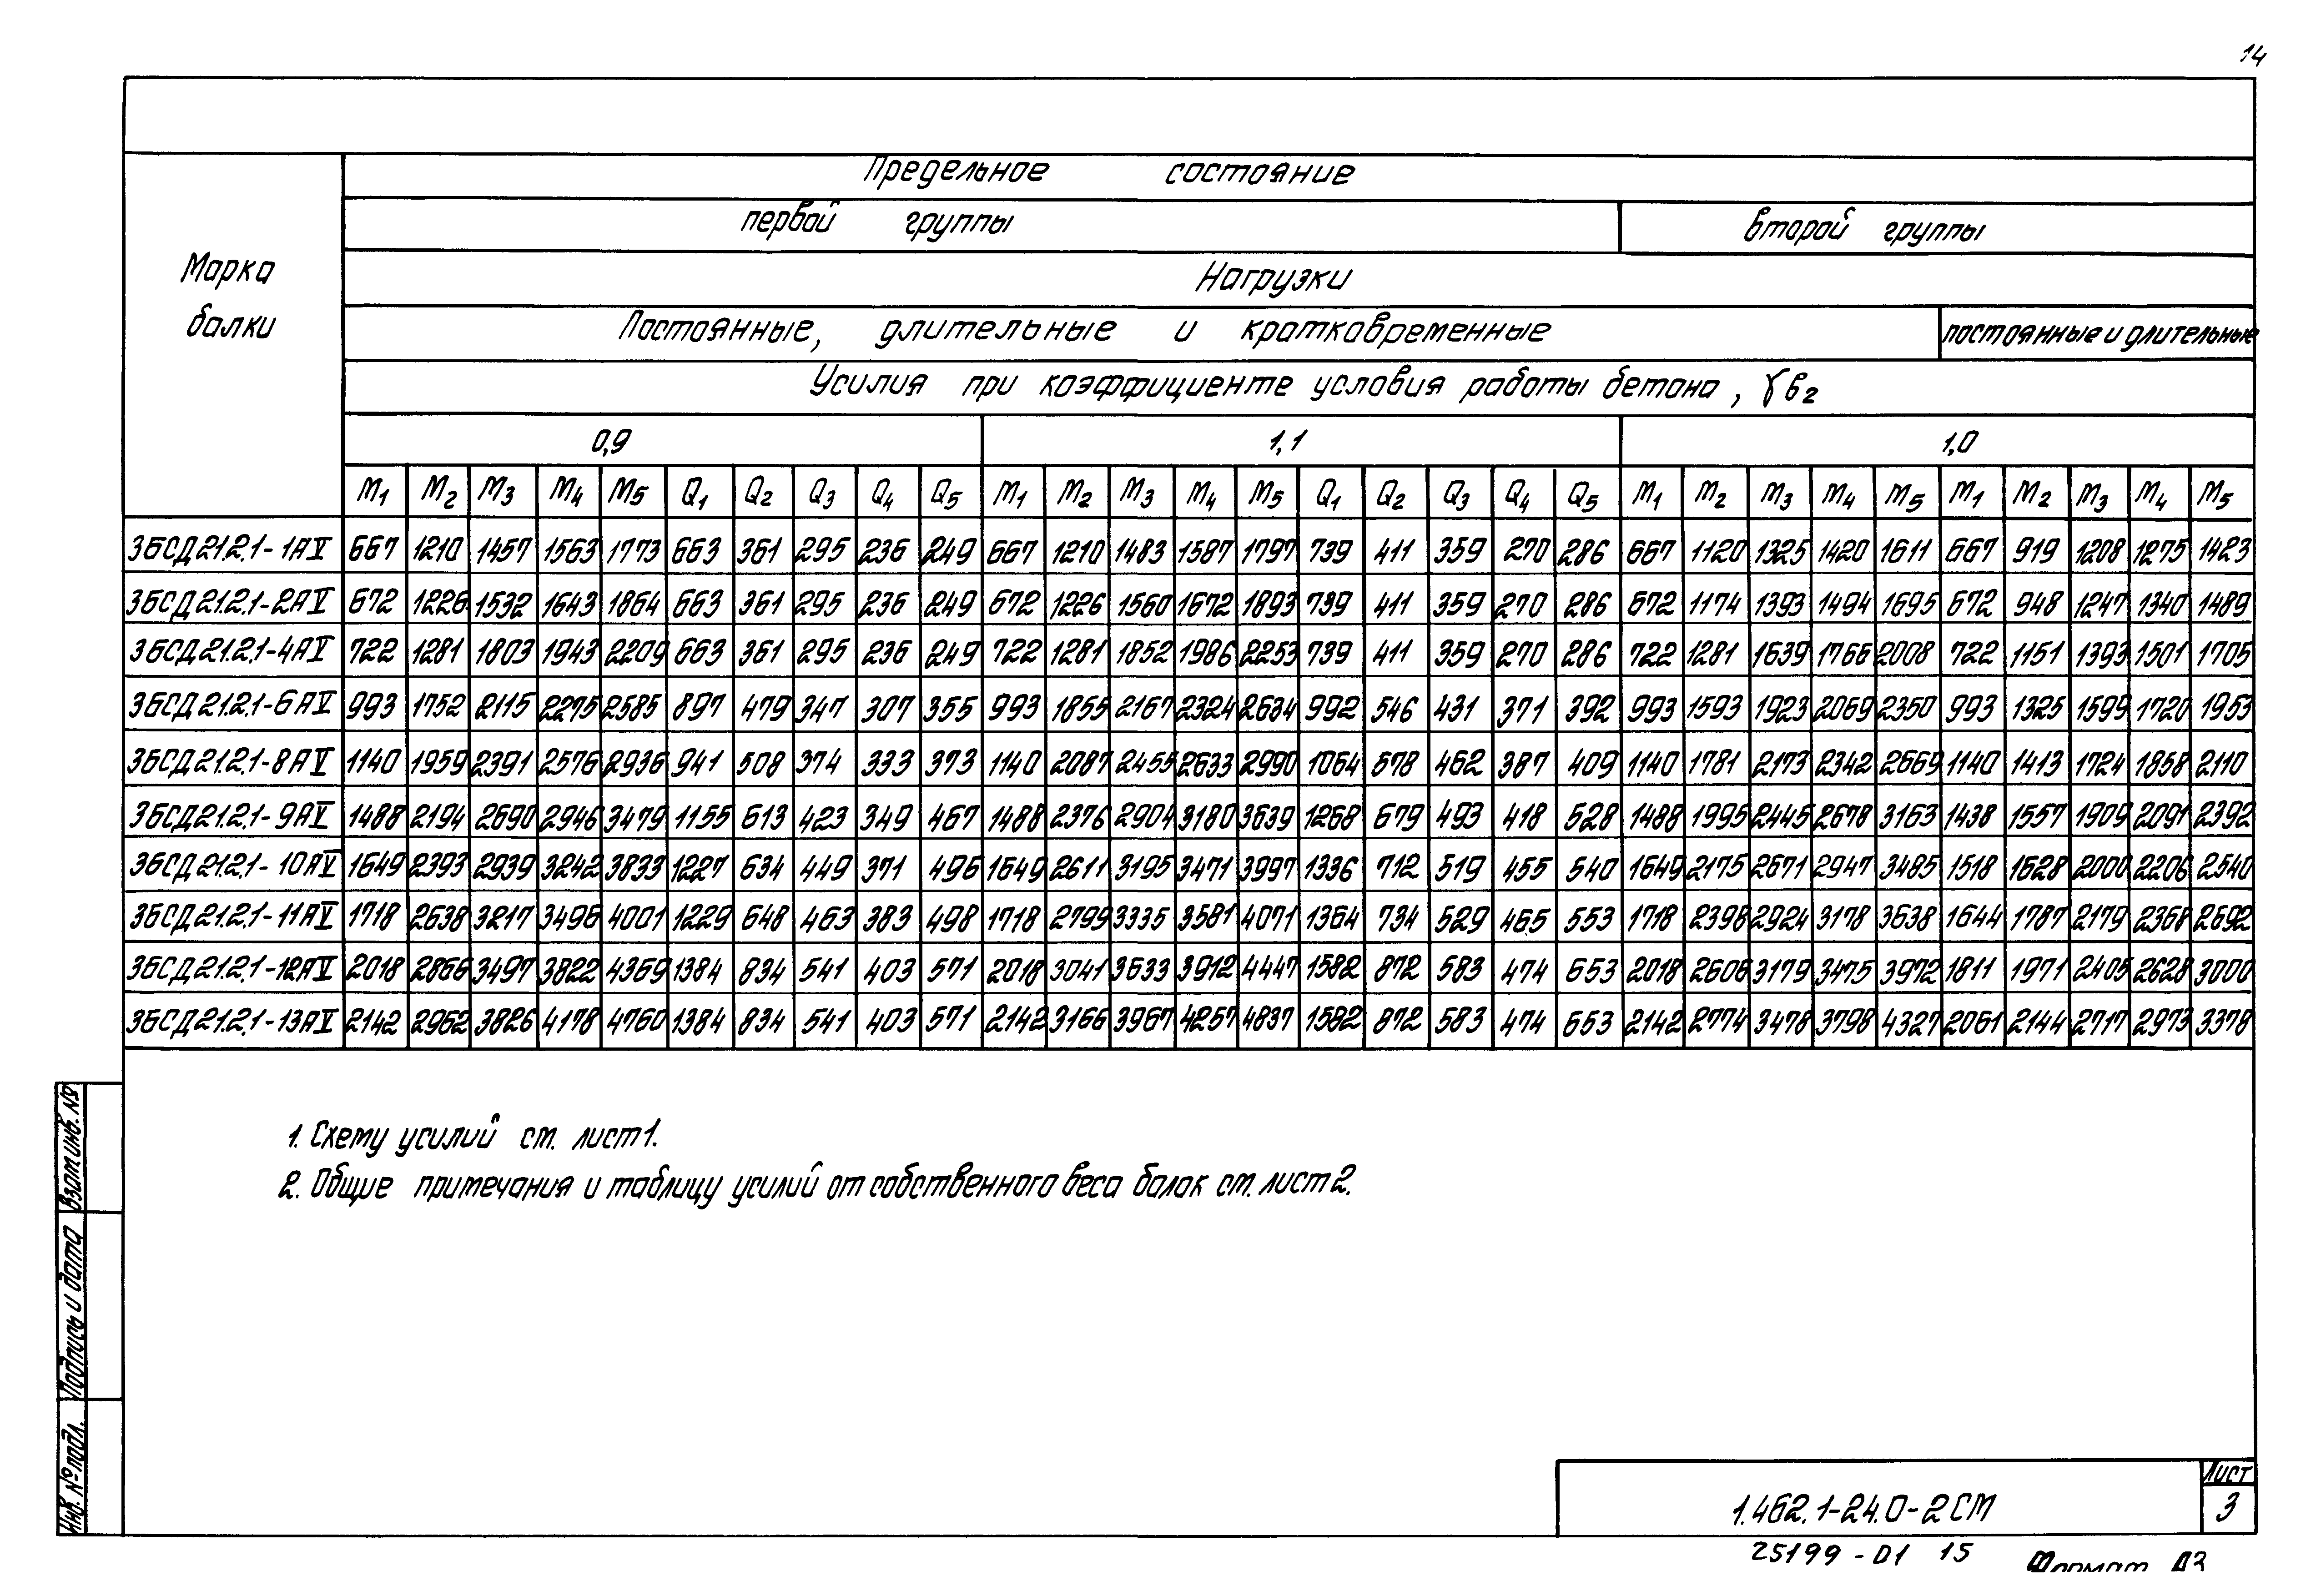 14
Предельное состояние
первой группы второй группы
Марка балки
Нагрузки
Постоянные, длительные и кратковременные постоянные и длительные
Усилия при коэффициенте условия работы бетона, γв2
0,9 1,1 1,0
M1 M2 M3 M4 M5 Q1 Q2 Q3 Q4 Q5 M1 M2 M3 M4 M5 Q1 Q2 Q3 Q4 Q5 M1 M2 M3 M4 M5 M1 M2 M3 M4 M5
3БСД21.2.1-1АV 667 1210 1457 1563 1773 663 361 295 236 249 667 1210 1483 1587 1797 739 411 359 270 286 667 1120 1325 1420 1611 667 919 1208 1275 1423
3БСД21.2.1-2АV 672 1226 1532 1643 1864 663 361 295 236 249 672 1226 1560 1672 1893 739 411 359 270 286 672 1174 1393 1494 1695 672 948 1247 1340 1489
3БСД21.2.1-4АV 722 1281 1803 1943 2209 663 361 295 236 249 722 1281 1852 1986 2253 739 411 359 270 286 722 1281 1639 1766 2008 722 1151 1393 1501 1705
3БСД21.2.1-6АV 993 1752 2115 2275 2585 897 479 347 307 355 993 1855 2167 2324 2634 992 546 431 371 392 993 1593 1923 2069 2350 993 1325 1599 1720 1953
3БСД21.2.1-8АV 1140 1959 2391 2576 2936 941 508 374 333 373 1140 2087 2455 2633 2990 1064 578 462 387 409 1140 1781 2173 2342 2669 1140 1413 1724 1858 2110
3БСД21.2.1-9АV 1488 2194 2690 2946 3479 1155 613 423 349 467 1488 2376 2904 3180 3639 1268 679 493 418 528 1488 1995 2445 2678 3163 1438 1557 1909 2091 2392
3БСД21.2.1-10АV 1649 2393 2939 3242 3833 1227 634 449 371 496 1649 2611 3195 3471 3997 1336 712 519 455 540 1649 2175 2671 2947 3485 1518 1628 2000 2206 2540
3БСД21.2.1-11АV 1718 2638 3217 3496 4001 1229 648 463 383 498 1718 2799 3335 3581 4071 1364 734 529 465 553 1718 2398 2924 3178 3638 1644 1787 2179 2368 2692
3БСД21.2.1-12АV 2018 2866 3497 3822 4369 1384 834 541 403 571 2018 3041 3633 3912 4447 1582 872 583 474 653 2018 2606 3179 3475 3972 1811 1971 2405 2628 3000
3БСД21.2.1-13АV 2142 2962 3826 4178 4760 1384 834 541 403 571 2142 3166 3967 4257 4837 1582 872 583 474 653 2142 2774 3478 3798 4327 2061 2144 2717 2973 3378
1. Схему усилий см. лист 1.
2. Общие примечания и таблицу усилий от собственного веса балок см. лист 2.
Взам инв. №
Подпись и дата
Инв. № подл.
Лист
1.462.1-24.0-2СМ 3
25199-01 15 Формат А3